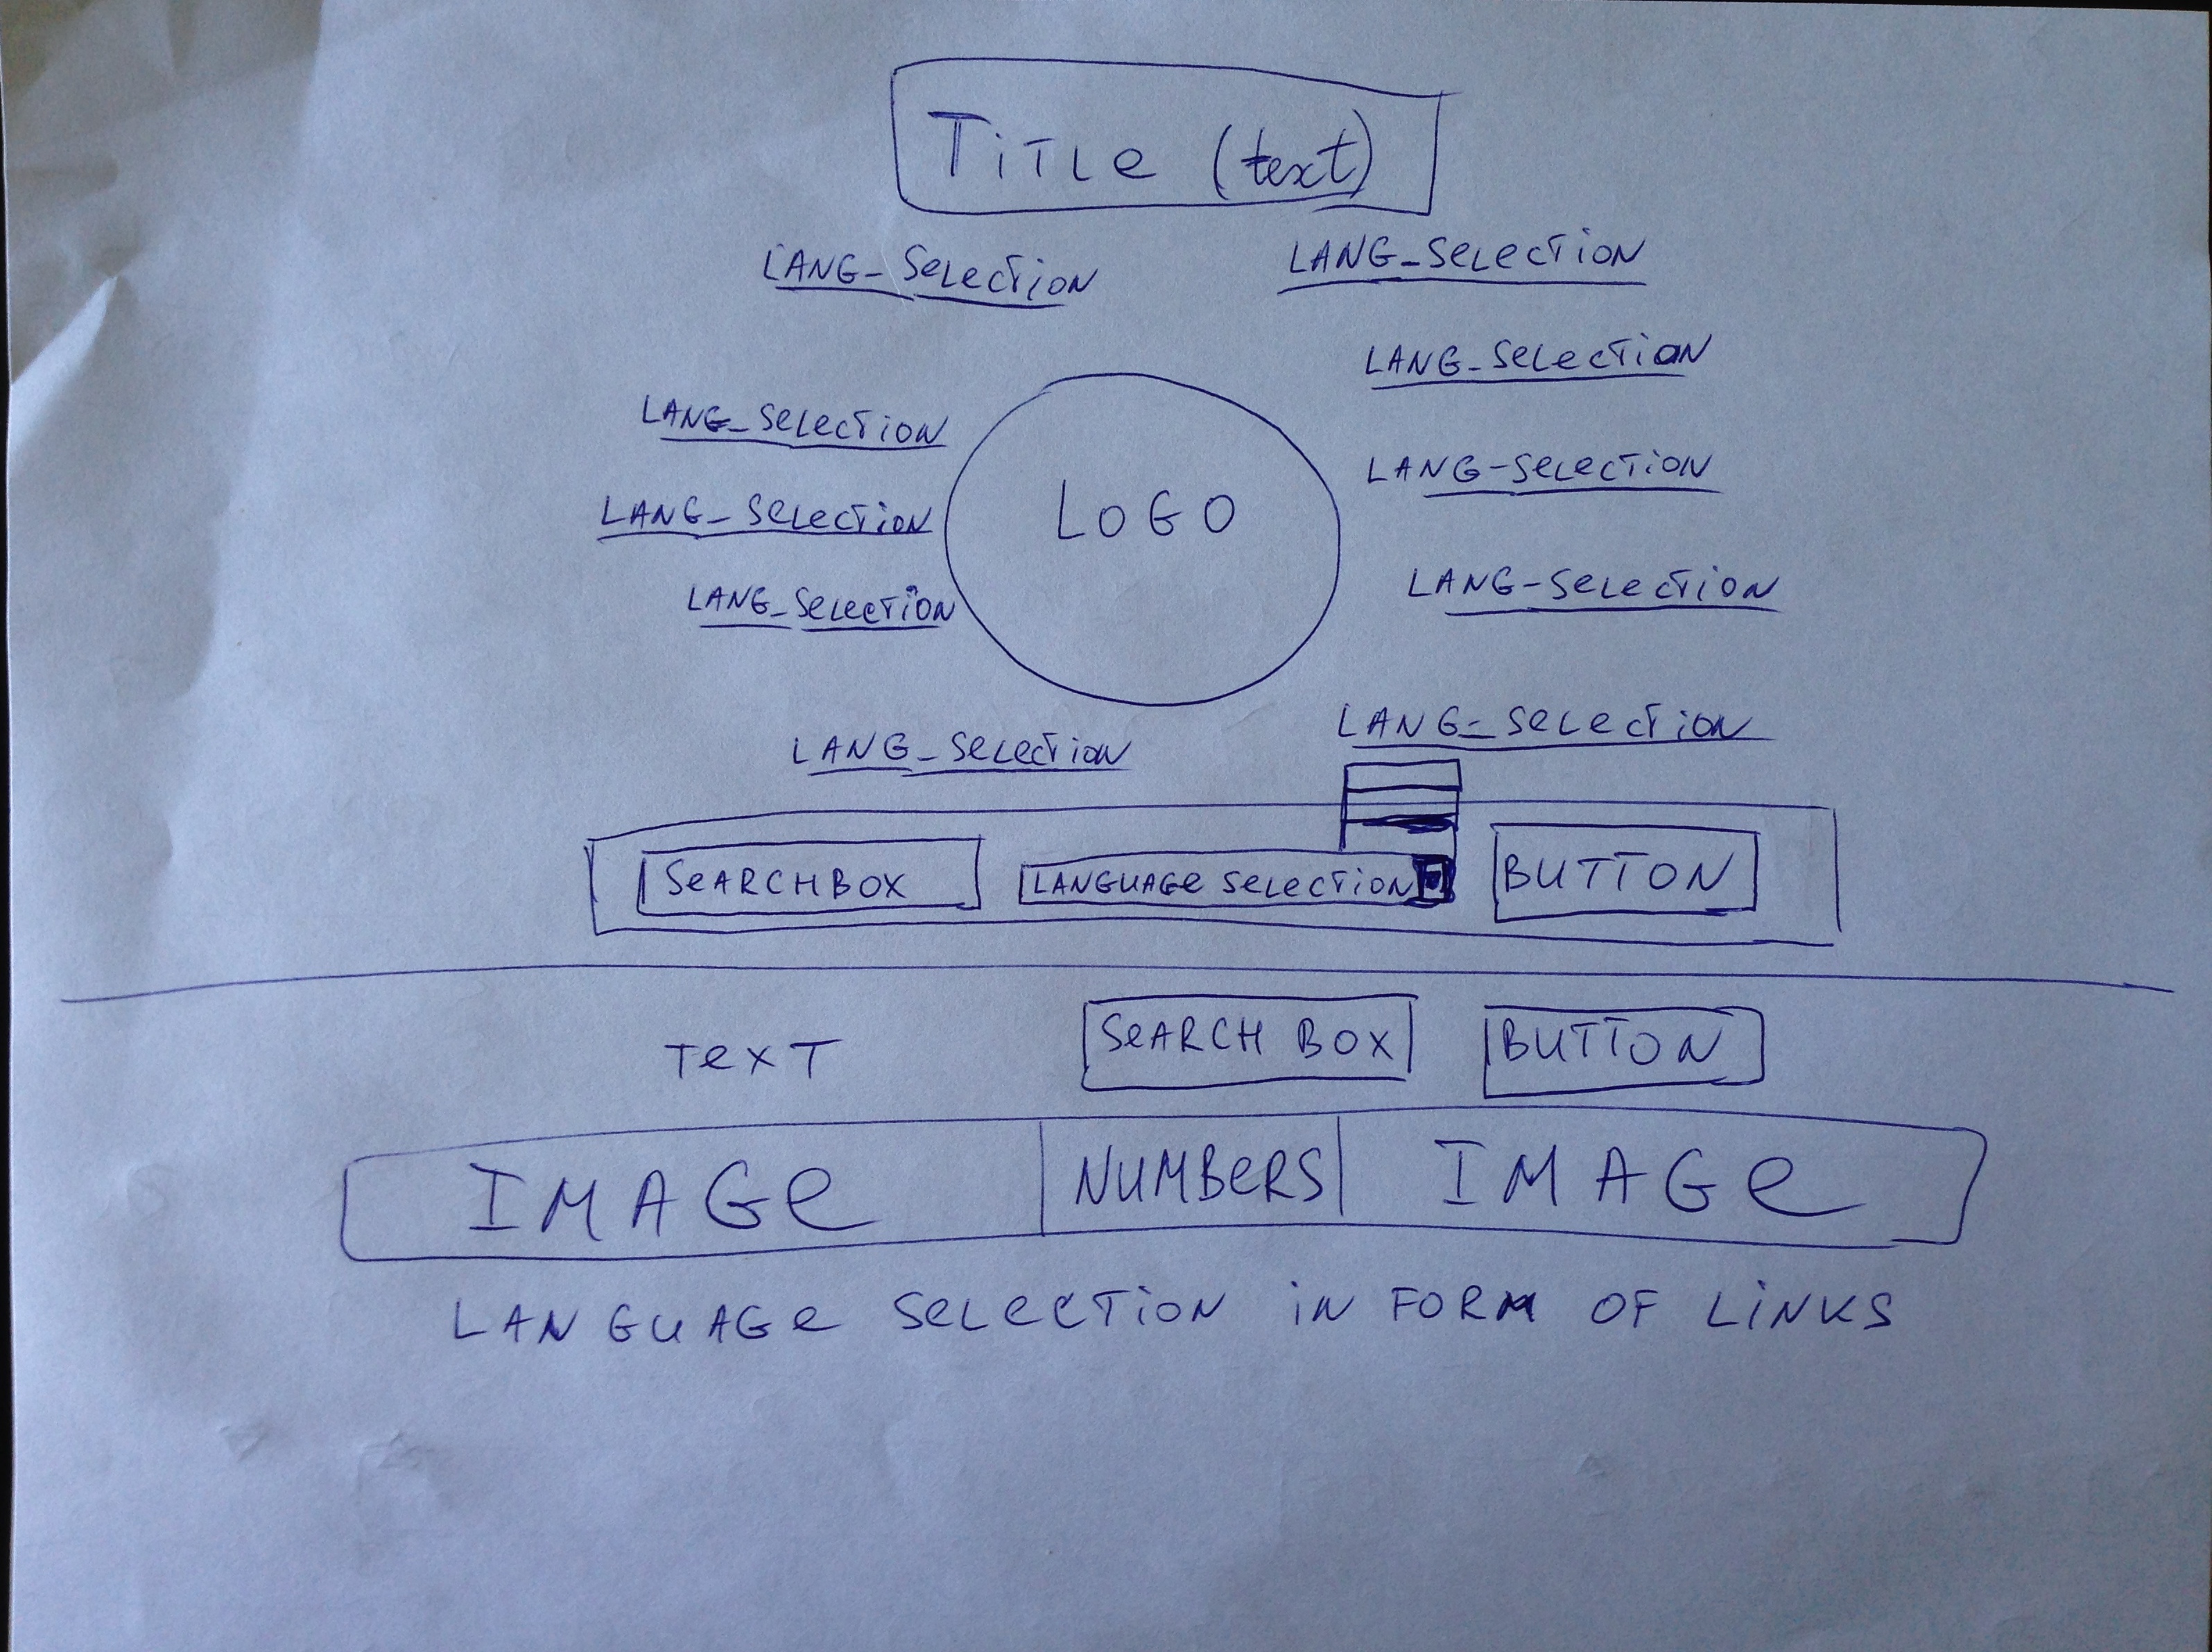 TiTLe (text)
LANG-SeLecTiON LANG-SeLecTiON
LANG-SeLecTiON
LANG-SeLecTiON
LANG-SeLecTiON
LOGO
LANG-SeLecTiON
LANG-SeLecTiON
LANG-SeLecTiON
LANG-SeLecTiON
LANG-SeLecTiON
SeARCHBOX LANGUAGe SeLecTiON BUTTON
TexT SeARCH BOX BUTTON
IMAGe NUMBeRS IMAGe
LANGUAGe SeLecTiON iN FORM OF LiNKS